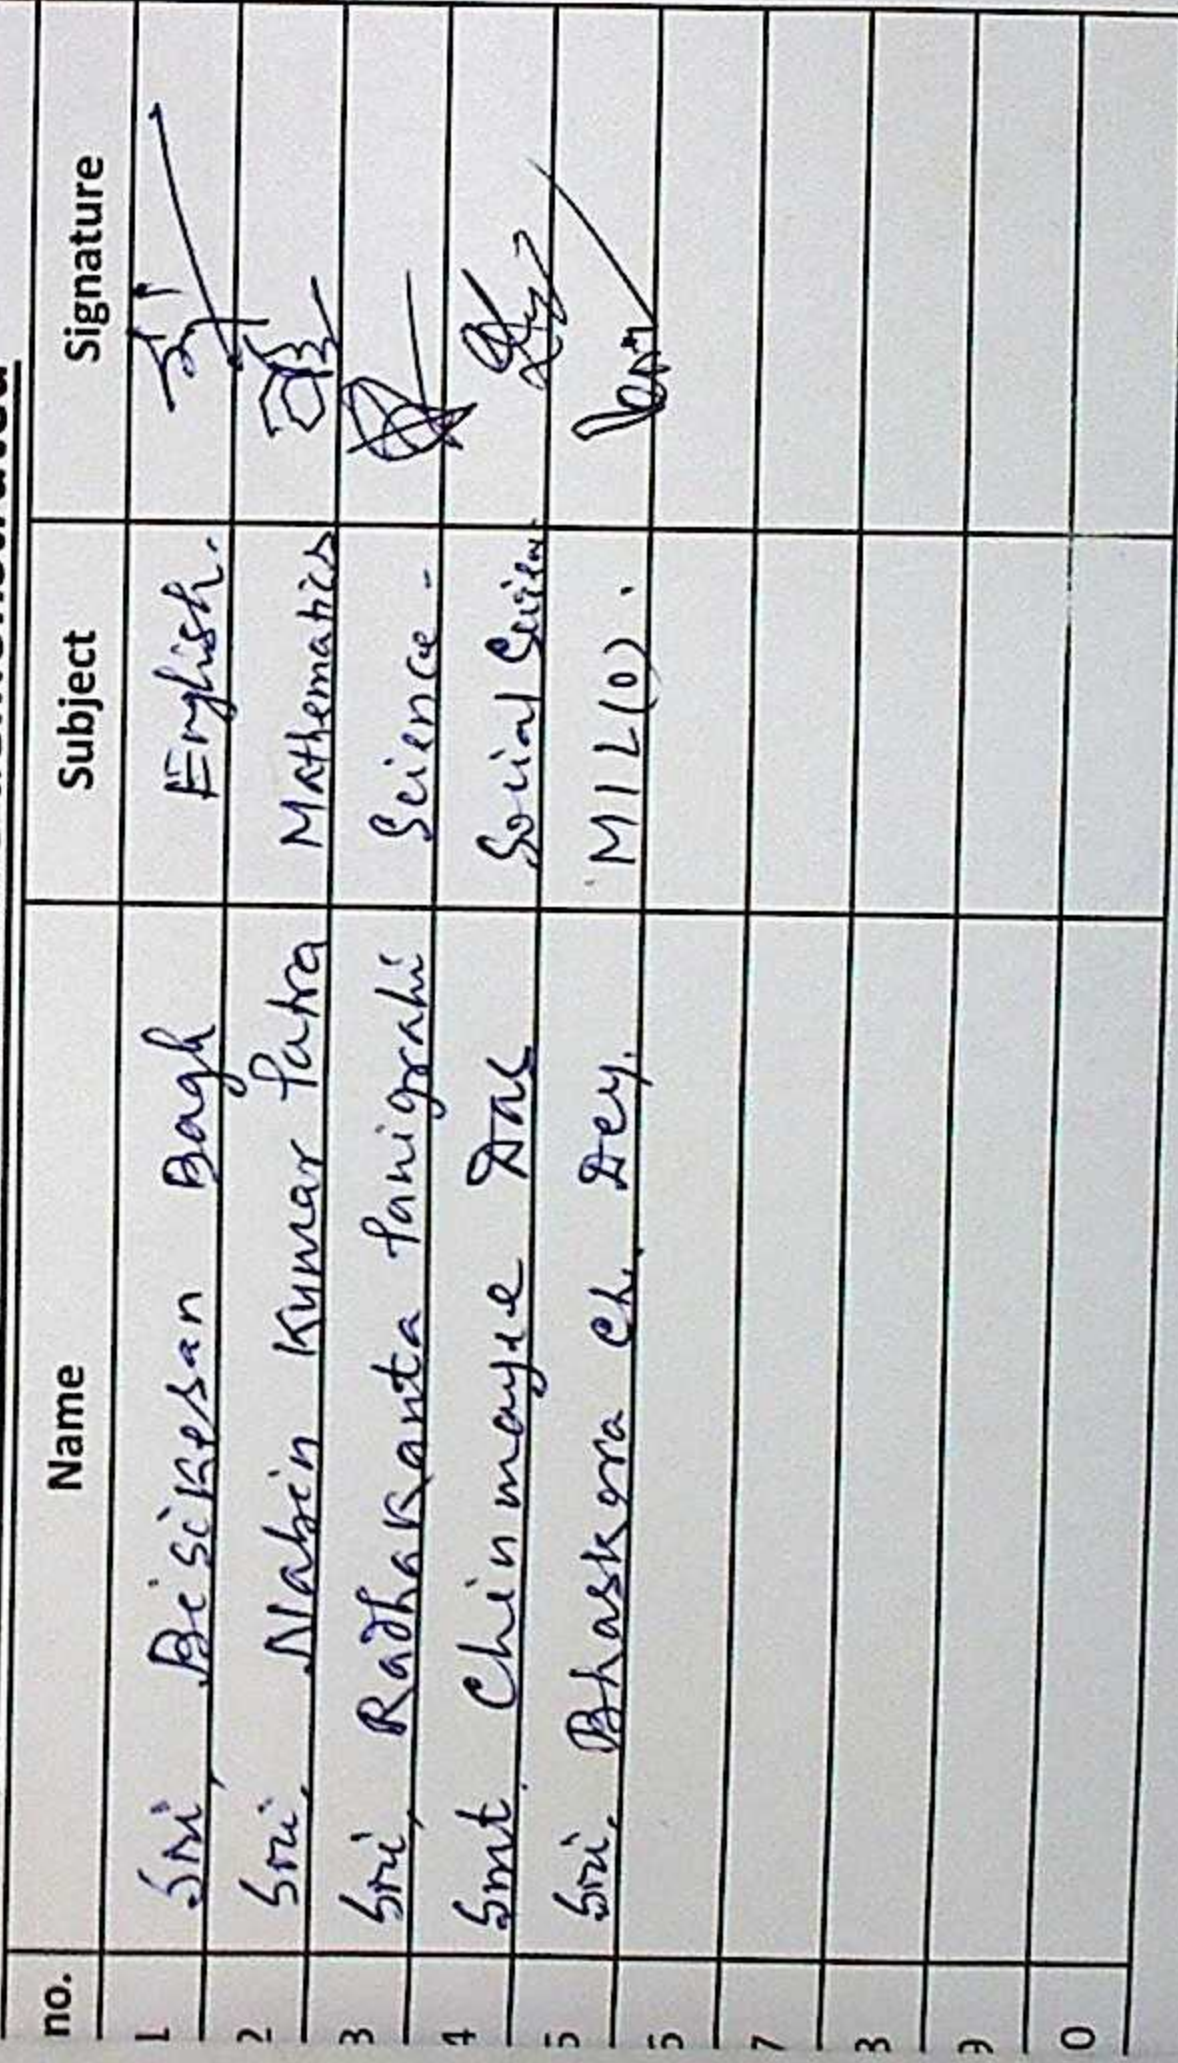 no. Name Subject Signature
1 Sri, Bisikesan Bagh English.
2 Sri, Nabin Kumar Patra Mathematics
3 Sri, Radhakanta Panigrahi Science -
4 Smt. Chinmayee Das Social Scien
5 Sri, Bhaskara Ch. Dey. MIL(O).
7
9
0